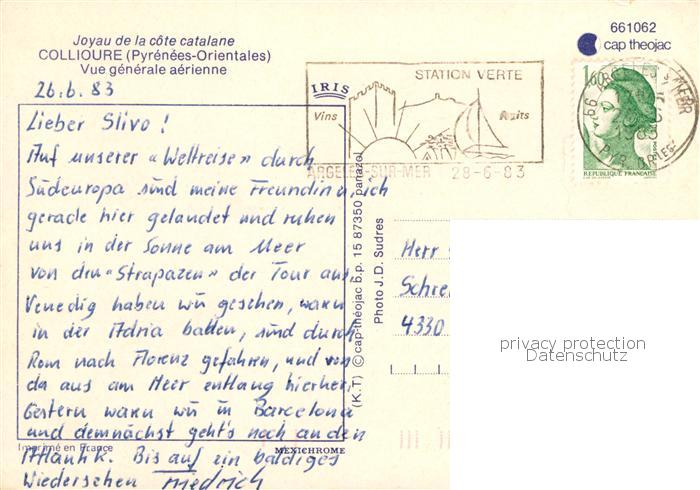 Joyau de la côte catalane
COLLIOURE (Pyrénées-Orientales)
Vue générale aérienne
661062
cap theojac
26.6.83
IRIS
STATION VERTE
Vins
Fruits
ARGELES-SUR-MER 28-6-83
1,60
REPUBLIQUE FRANÇAISE
66 ARGELES S/MER
PYR. ORIENT
Lieber Slivo!
Auf unserer «Weltreise» durch
Südeuropa sind meine Freundin, ich
gerade hier gelandet und ruhen
uns in der Sonne am Meer
von den «Strapazen» der Tour aus.
Venedig haben wir gesehen, waren
in der Adria baden, sind durch
Rom nach Florenz gefahren, und von
da aus am Meer entlang hierher.
Gestern waren wir in Barcelona
und demnächst geht's noch an den
Atlantik. Bis auf ein baldiges
Wiedersehen Friedrich
(K.T) © cap-théojac b.p. 15 87350 panazol
Photo J.D. Sudres
Herr
Schre
4330
privacy protection
Datenschutz
Imprimé en France
MEXICHROME